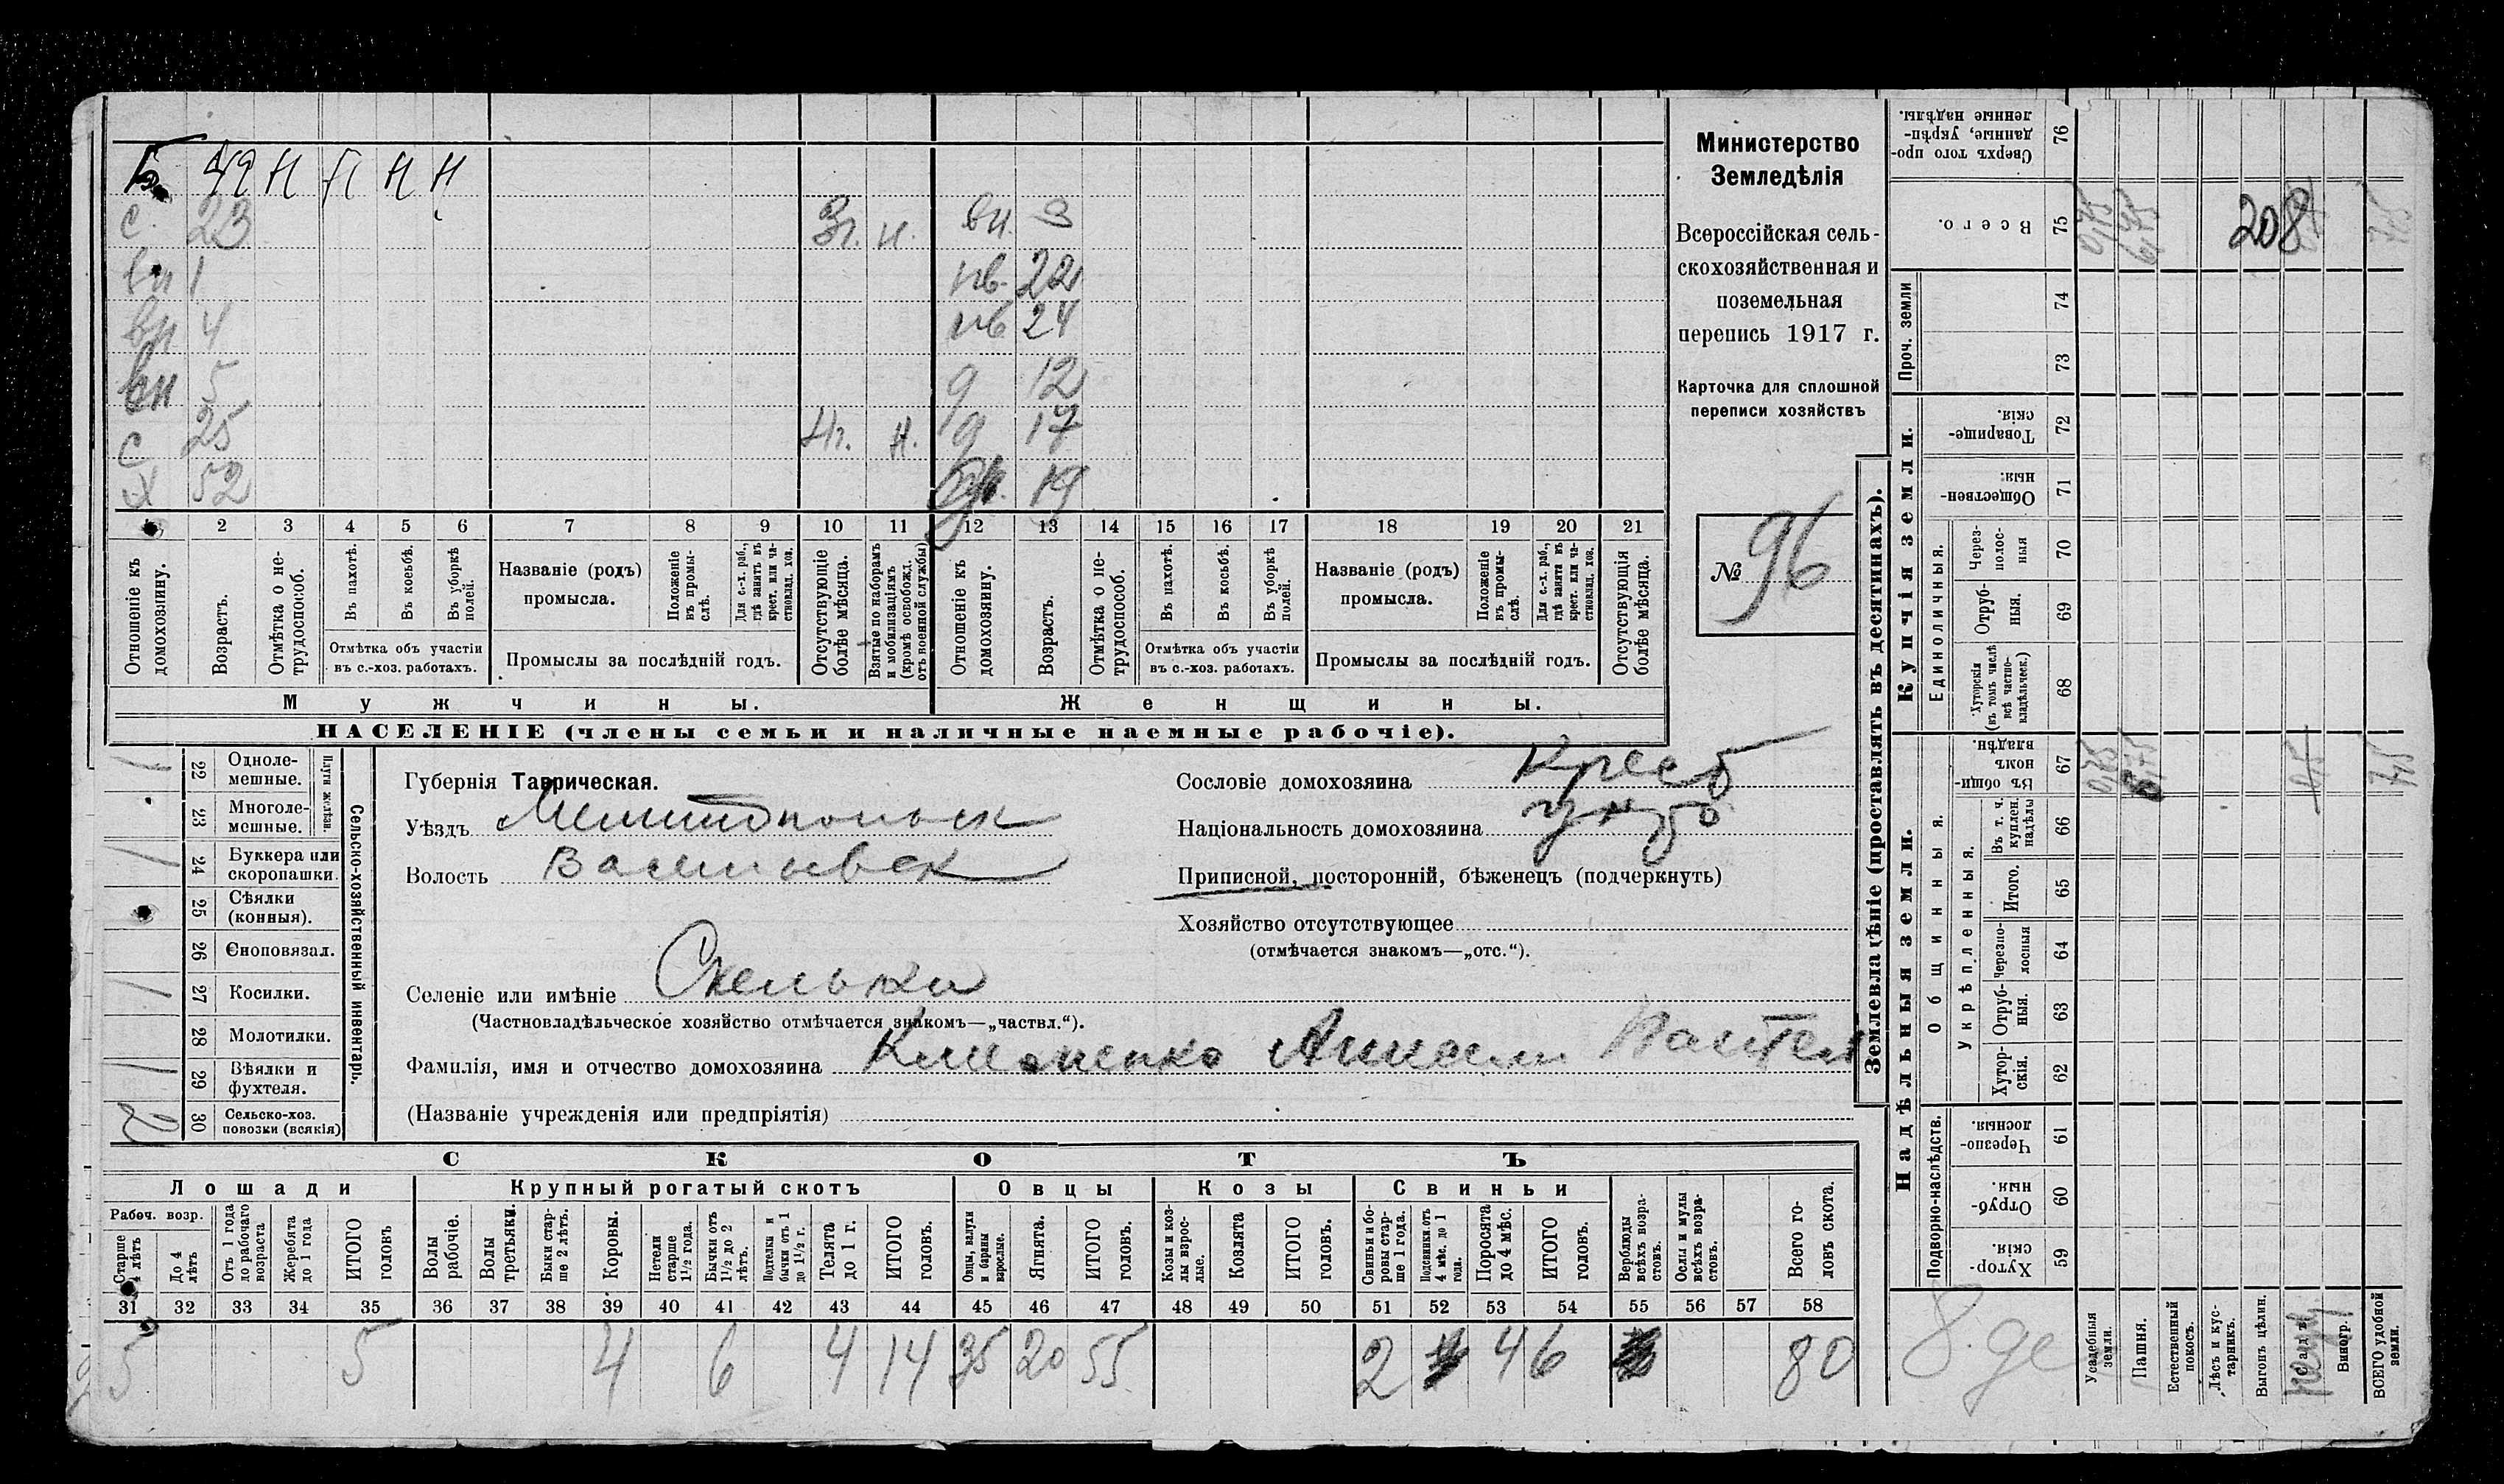 Б. 42 Н П Н Н
с. 23 3г. н. вн. 3
вн 1 нв. 22
вн 4 нв 24
вн 5 д 12
с 25 4г. н. д 17
х 52 19
1 2 3 4 5 6 7 8 9 10 11 12 13 14 15 16 17 18 19 20 21
Отношеніе къ домохозяину.
Возрастъ.
Отмѣтка о не-трудоспособ.
Въ пахотѣ.
Въ косьбѣ.
Въ уборкѣ полей.
Отмѣтка объ участіи въ с.-хоз. работахъ.
Названіе (родъ) промысла.
Положеніе въ промы-слѣ.
Для с.-х. раб., гдѣ занятъ въ крест. или ча-стновлад. хоз.
Промыслы за послѣдній годъ.
Отсутствующіе болѣе мѣсяца.
Взятые по наборамъ и мобилизаціямъ (кромѣ освобожд. отъ военной службы)
Отношеніе къ домохозяину.
Возрастъ.
Отмѣтка о не-трудоспособ.
Въ пахотѣ.
Въ косьбѣ.
Въ уборкѣ полей.
Отмѣтка объ участіи въ с.-хоз. работахъ.
Названіе (родъ) промысла.
Положеніе въ промы-слѣ.
Для с.-х. раб., гдѣ занята въ крест. или ча-стновлад. хоз.
Промыслы за послѣдній годъ.
Отсутствующія болѣе мѣсяца.
Мужчины.
Женщины.
НАСЕЛЕНІЕ (члены семьи и наличные наемные рабочіе).
Министерство
Земледѣлія
Всероссійская сель-
скохозяйственная и
поземельная
перепись 1917 г.
Карточка для сплошной
переписи хозяйствъ
№ 96
22 Одноле-мешные.
23 Многоле-мешные.
Плуги желѣзн.
24 Буккера или скоропашки.
25 Сѣялки (конныя).
26 Сноповязал.
27 Косилки.
28 Молотилки.
29 Вѣялки и фухтеля.
30 Сельско-хоз. повозки (всякія)
2
Сельско-хозяйственный инвентарь.
Губернія Таврическая.
Уѣздъ Мелитопольск
Волость Васильевск
Селеніе или имѣніе Скельки
(Частновладѣльческое хозяйство отмѣчается знакомъ—„частвл.“).
Фамилія, имя и отчество домохозяина Клименко Анисим Пантел
(Названіе учрежденія или предпріятія)
Сословіе домохозяина Крест
Національность домохозяина
Приписной, посторонній, бѣженецъ (подчеркнуть)
Хозяйство отсутствующее
(отмѣчается знакомъ—„отс.“).
СКОТЪ
Лошади Крупный рогатый скотъ Овцы Козы Свиньи
Рабоч. возр.
Старше 4 лѣтъ
До 4 лѣтъ
Отъ 1 года до рабочаго возраста
Жеребята до 1 года
ИТОГО головъ
Волы рабочіе.
Волы третьяки.
Быки стар-ше 2 лѣтъ.
Коровы.
Нетели старше 1½ года.
Бычки отъ 1½ до 2 лѣтъ.
Подтелки и бычки отъ 1 до 1½ г.
Телята до 1 г.
ИТОГО головъ.
Овцы, валухи и бараны взрослые.
Ягнята.
ИТОГО головъ.
Козы и коз-лы взрос-лые.
Козлята
ИТОГО головъ.
Свиньи и бо-ровы стар-ше 1 года.
Подсвинки отъ 4 мѣс. до 1 года.
Поросята до 4 мѣс.
ИТОГО головъ.
Верблюды всѣхъ возра-стовъ.
Ослы и мулы всѣхъ возра-стовъ.
Всего го-ловъ скота.
31 32 33 34 35 36 37 38 39 40 41 42 43 44 45 46 47 48 49 50 51 52 53 54 55 56 57 58
5 5 4 6 4 14 35 20 55 2 4 6 80
Землевладѣніе (проставлять въ десятинахъ).
Купчія земли.
Надѣльныя земли.
Сверхъ того про-данные, укрѣп-ленные надѣлы. 76
Всего. 75
208
Проч. земли 74 73
Товарище-скія. 72
Обществен-ныя. 71
Единоличныя.
Через-полос-ныя 70
Отруб-ныя. 69
Хуторскія (въ томъ числѣ всѣ частно-владѣльческ.) 68
Общинныя.
Въ общи-номъ владѣн. 67
Укрѣпленныя.
Въ т. ч. куплен. надѣлы 66
Итого. 65
Черезпо-лосныя 64
Отруб-ныя. 63
Хутор-скія. 62
Подворно-наслѣдств.
Черезпо-лосныя. 61
Отруб-ныя. 60
Хутор-скія. 59
Усадебныя земли.
Пашня.
Естественный покосъ.
Лѣсъ и кус-тарникъ.
Выгонъ цѣлин.
Виногр.
ВСЕГО удобной земли.